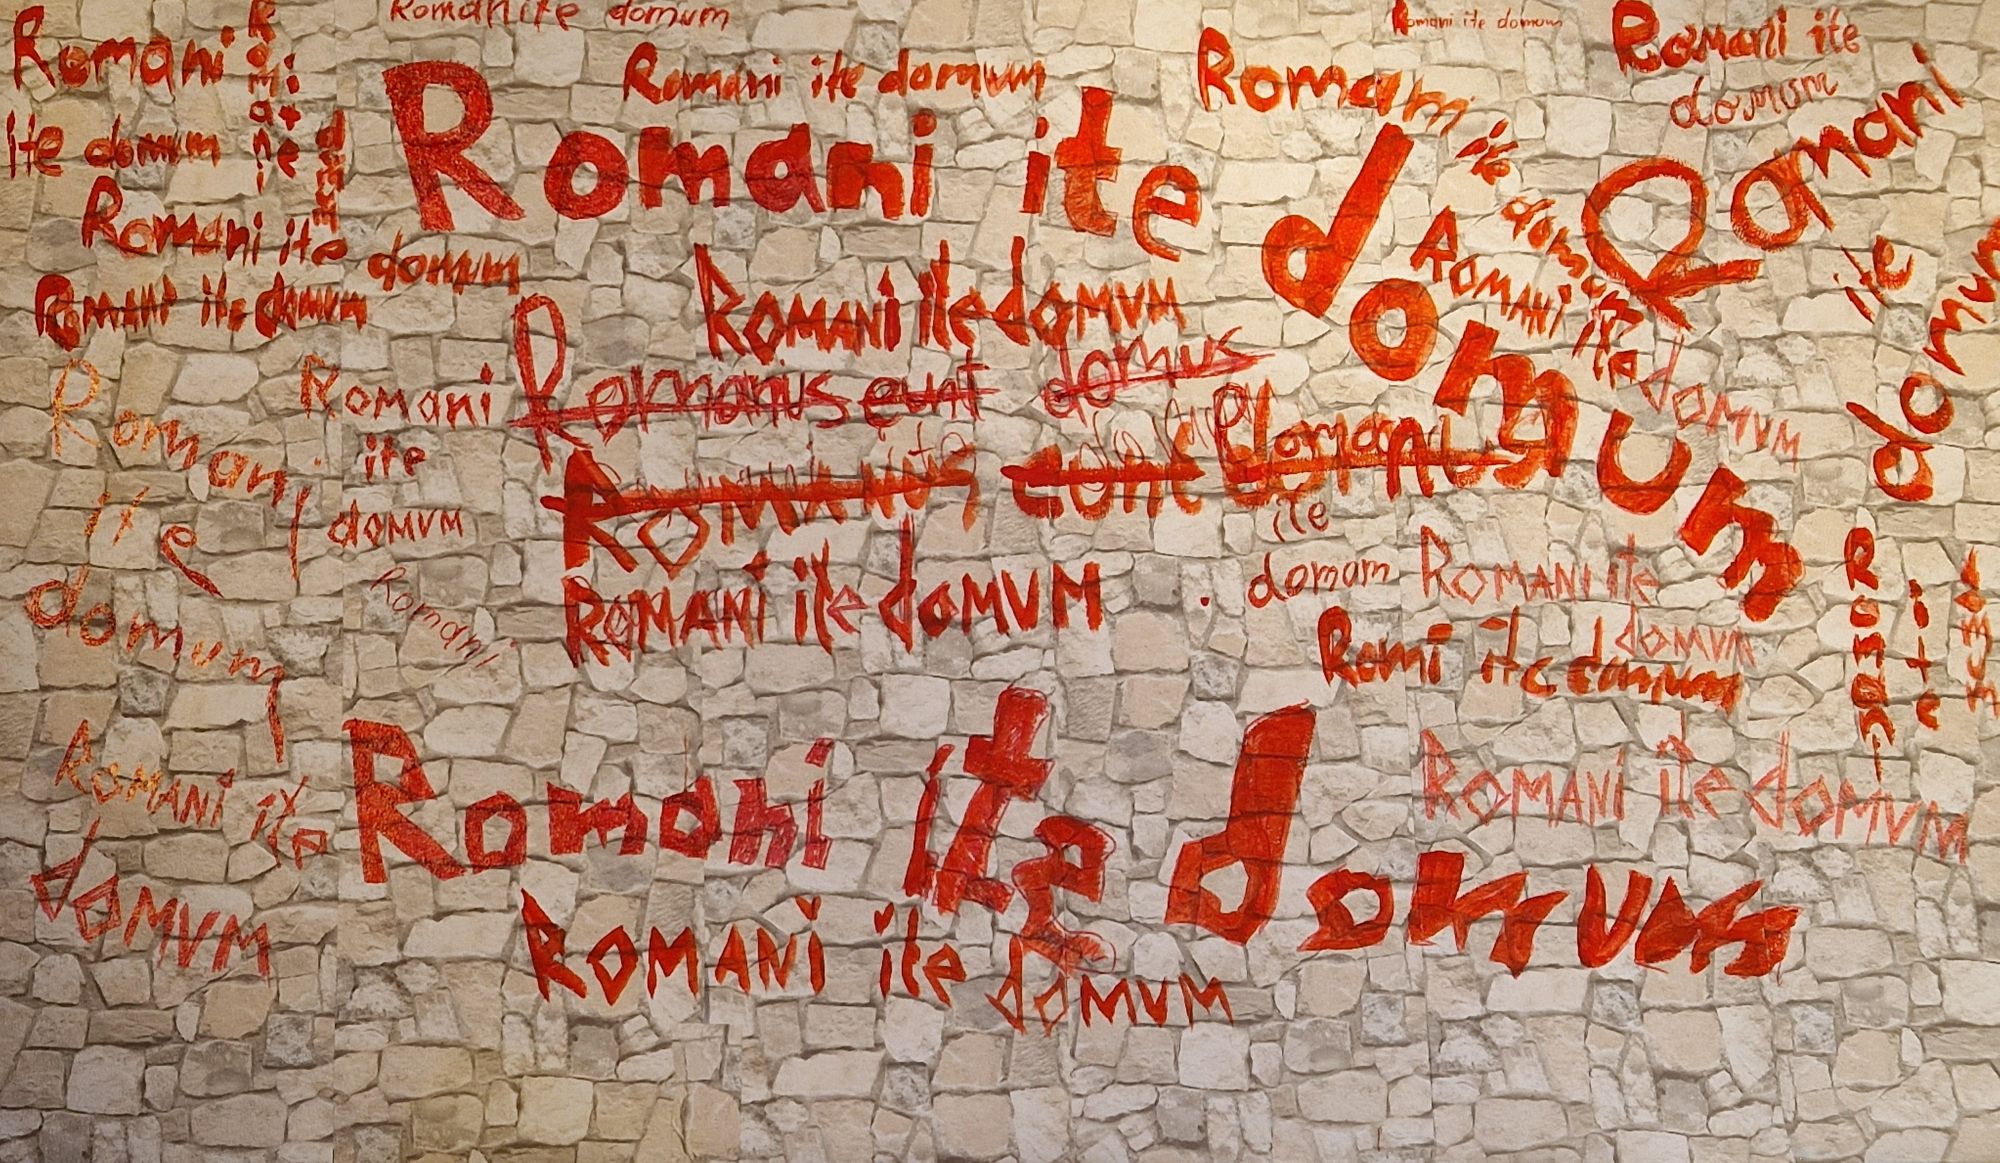 Romani ite domum
Romani
ite domum
Romani
ite
domum
Romani ite domum
Romani ite domum
Romani ite domum
Romani ite
domum
Romani
ite
domum
Romani ite
domum
Romani ite domum
Romani
ite
domum
Romani ite domum
ROMANI ite domum
ROMANI ite domum
Romani ite domum
Romanus eunt domus
Romani
ite
domum
Romani
ite
domum
eunt
ite
domum
ROMANI ite domum
ROMANI ite
domum
Romani
Romi ite domum
Romani
ite
domum
Romani ite domum
ROMANI ite
domum
ROMANI ite domum
ROMANI ite domum